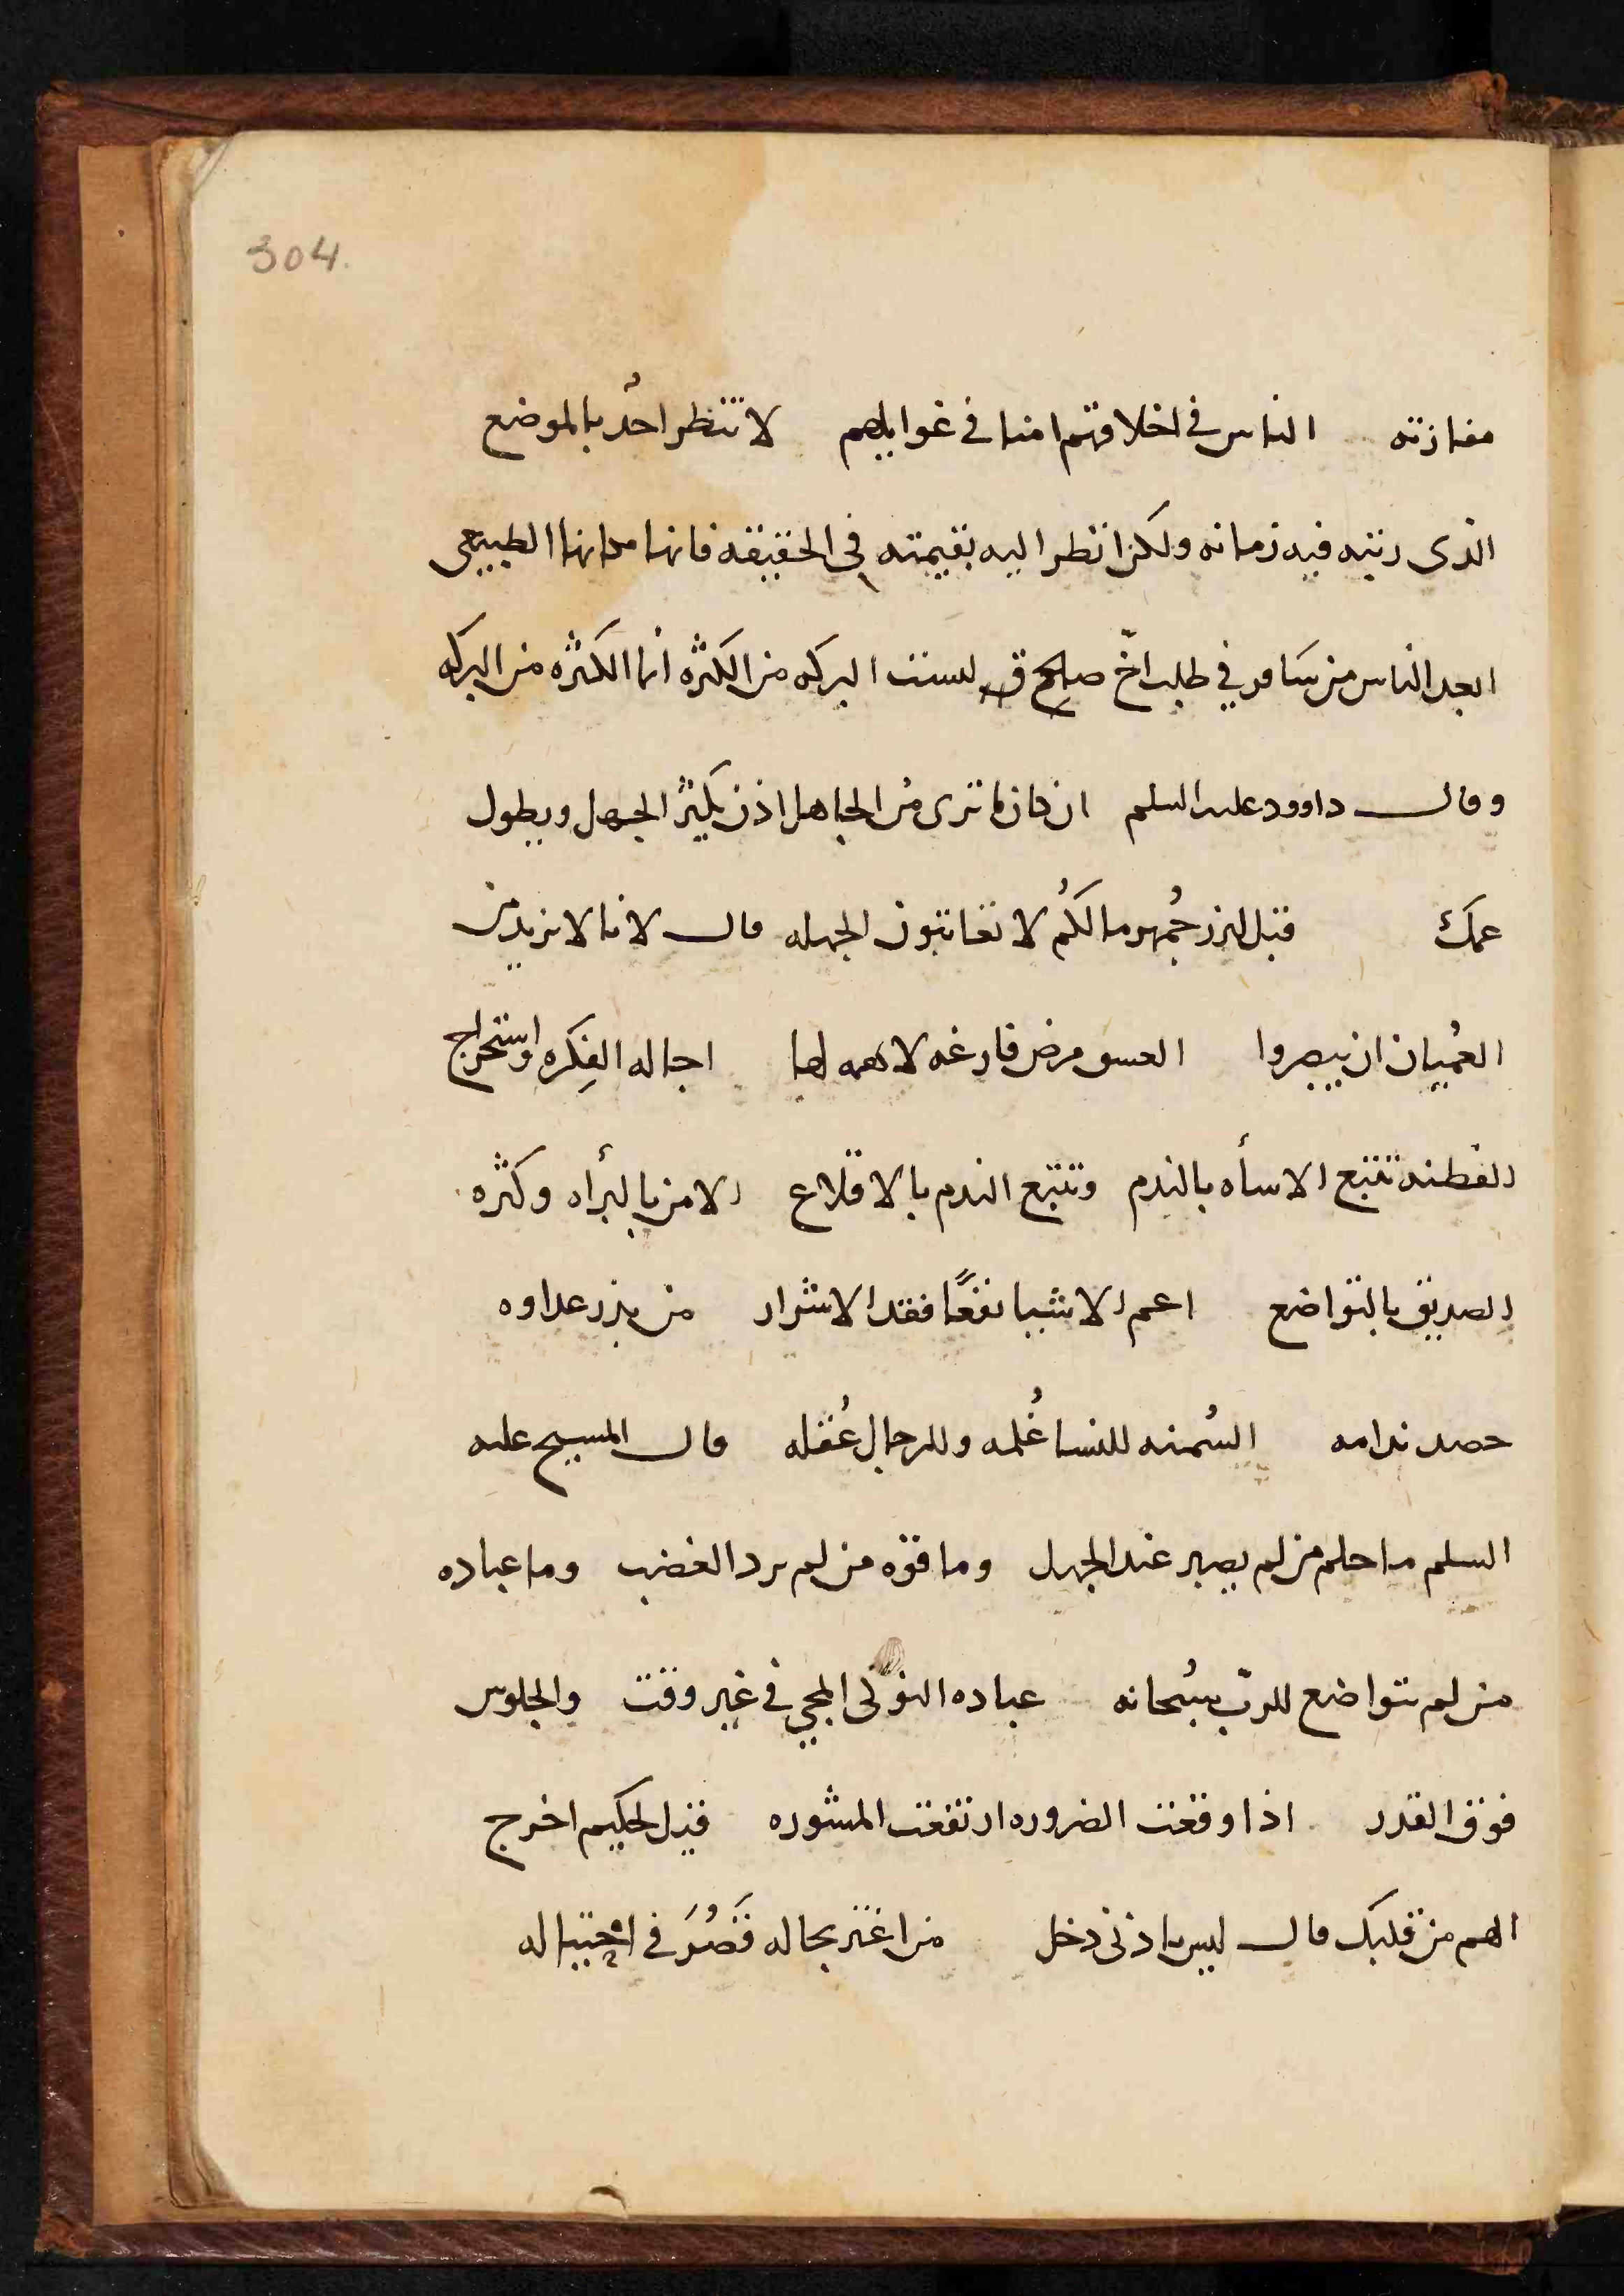 304.
مفازته الناس في اخلاقهم امنا في غوايلهم لا تنظر احدٌ بالموضع
الذى رتبه فيه زمانه ولكن انظر اليه بقيمته في الحقيقه فانها مكانها الطبيعى
ابعد الناس من سافر في طلب اخّ صلح ق ليست البركه من الكثره انما الكثره من البركه
وقال داوود عليه السلم ان كان ما ترى من الجاهل اذن يكثر الجهل ويطول
عمك قيل لبزرجُمهر ما لكُم لا تعاتبون الجهله قال لانا لا نريد من
العُميان ان يبصروا العسق مرض فارغه لا همه لها اجاله الفِكره واستخراج
الفطنه تتبع الاسأه بالندم وتتبع الندم بالاقلاع الامن بالبرأه وكثره
الصديق بالتواضع اعم الاشيا نفعًا فقد الاشرار من بذر عداوه
حصد ندامه السُمنه للنسا غُلمه وللرجال عُقله قال المسيح عليه
السلم ما حلم من لم يصبر عند الجهل وما قوّه من لم يرد الغضب وما عباده
من لم يتواضع للربّ سبُحانه عباده النوكى المجي في غير وقت والجلوس
فوق القدر اذا وقعت الضروره ارتفعت المشوره قيل لحكيم اخرج
الهم من قلبك قال ليس باذنى دخل من اغتر بحاله قَصُرَ في احتياله